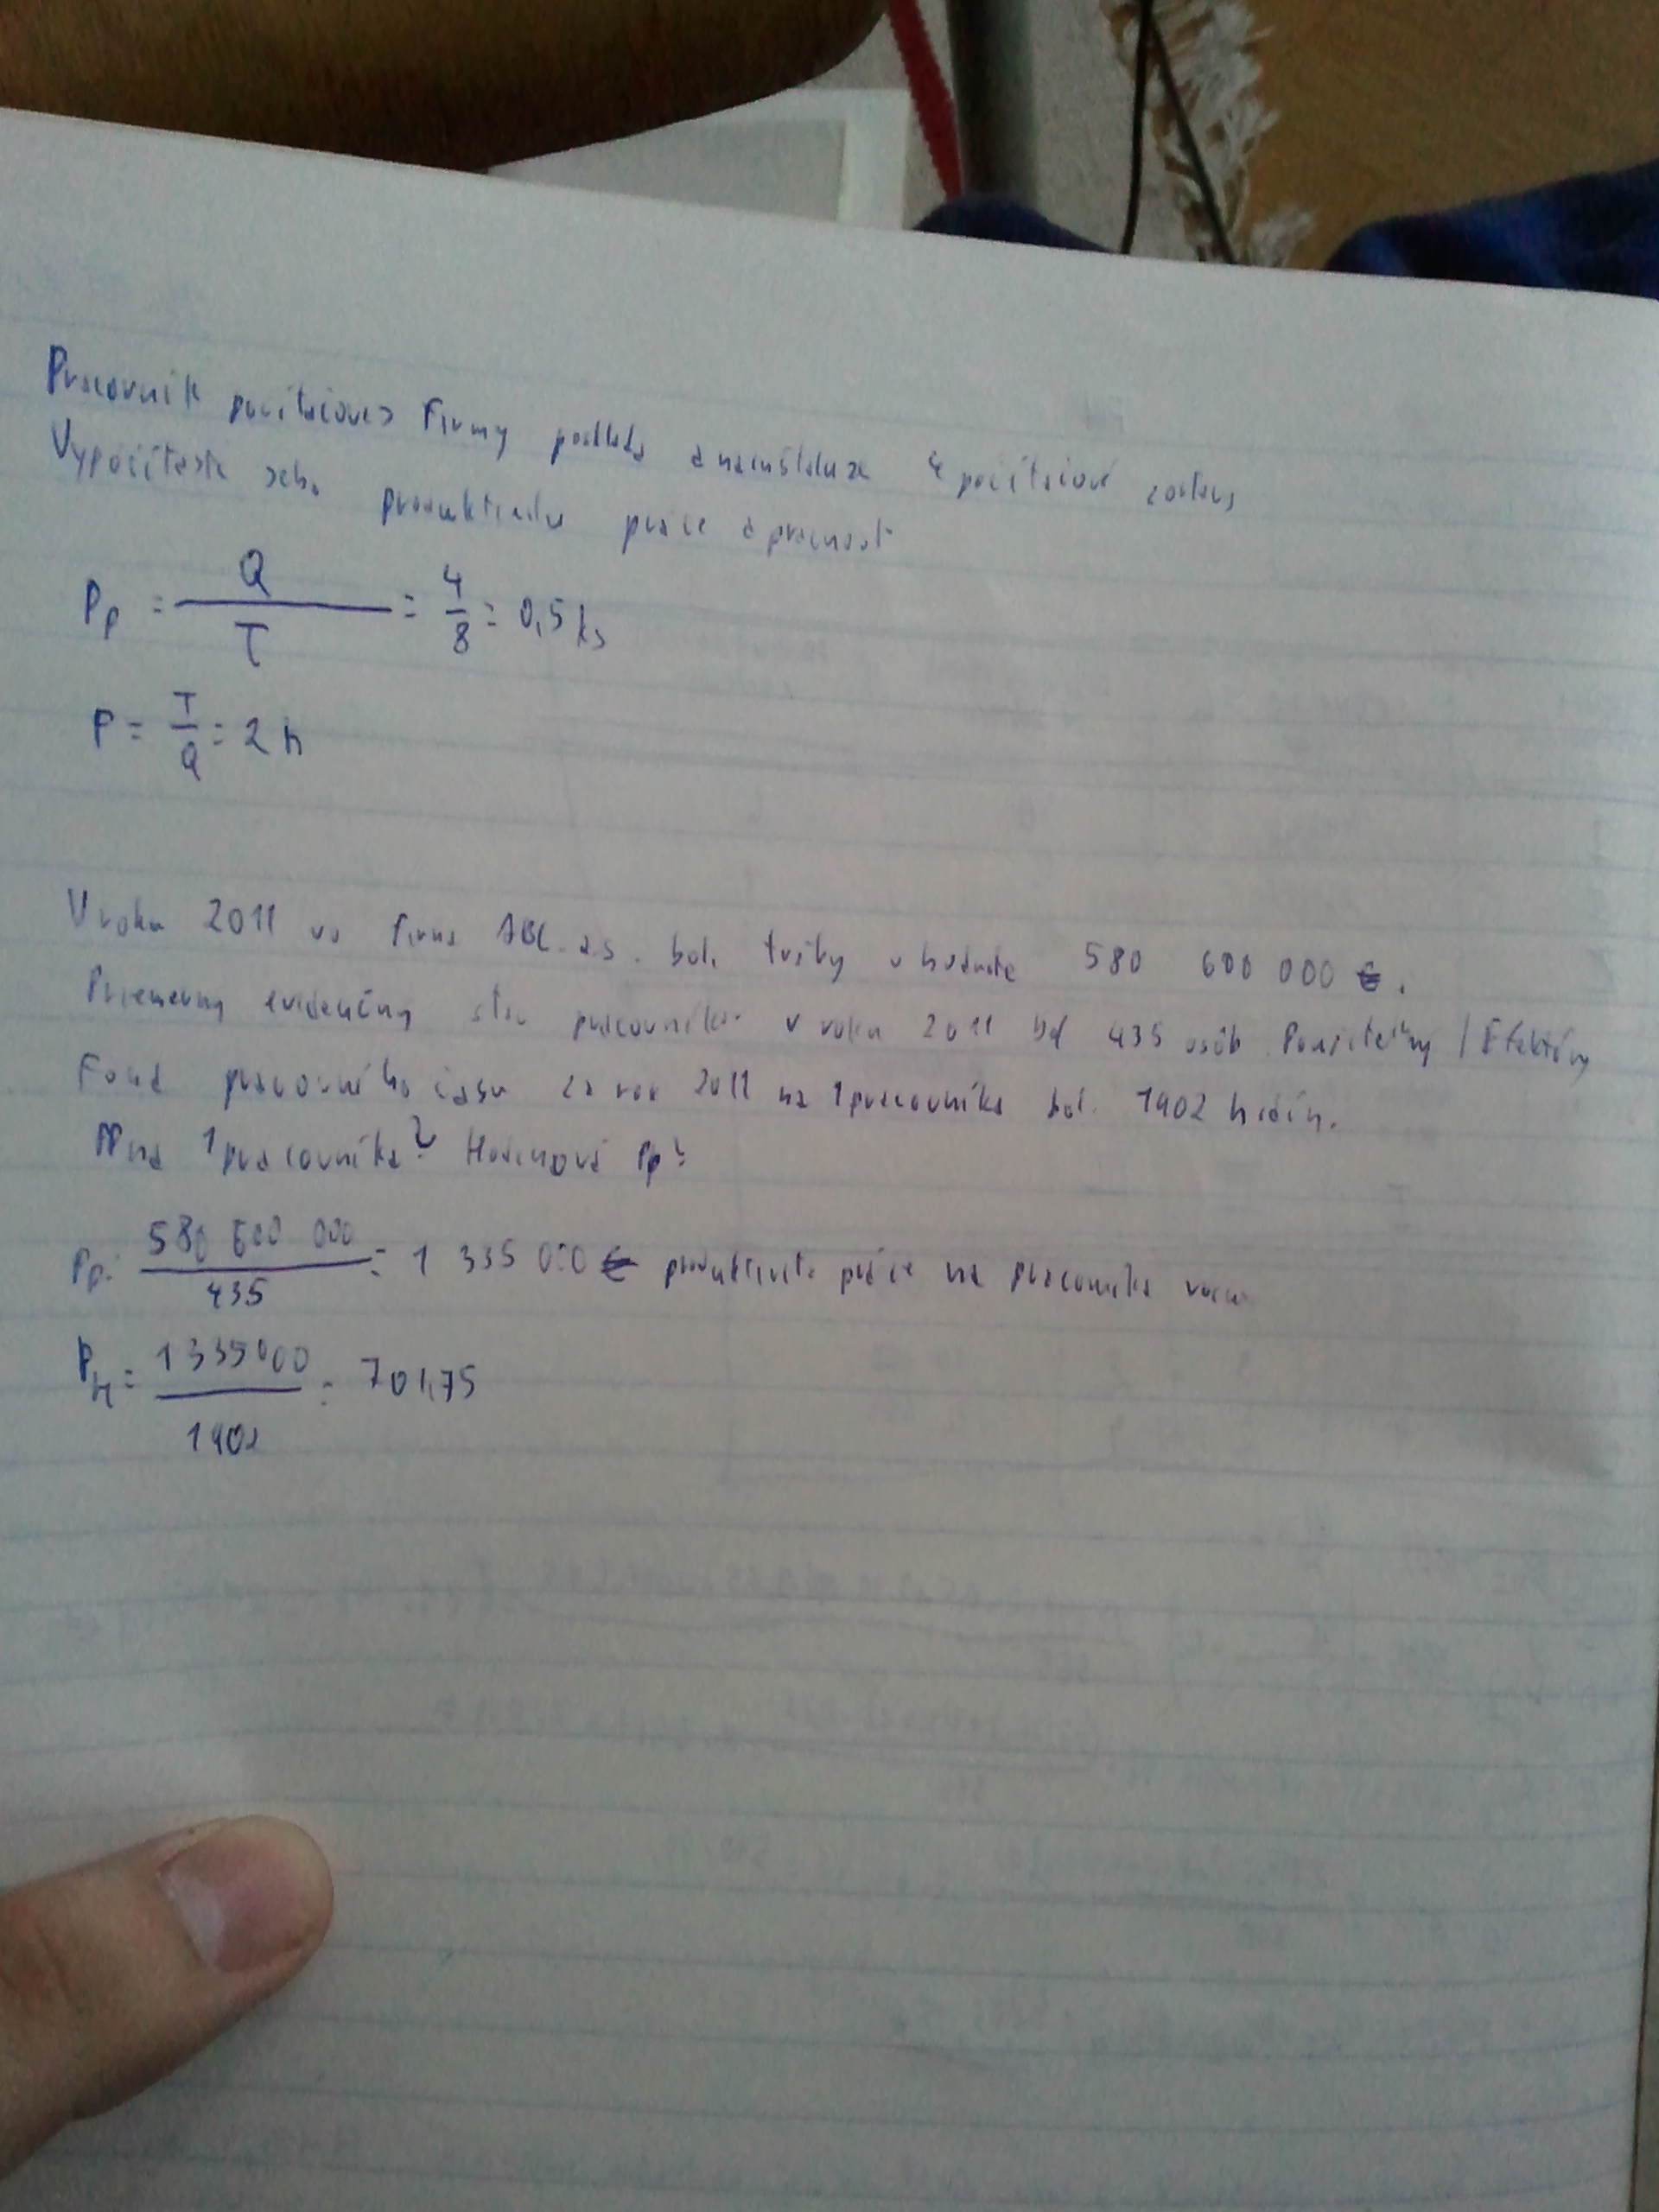 Pracovník počítačovej firmy poskladá a nainštaluje 4 počítačové zostavy
Vypočítajte jeho produktivitu práce a prácnosť
Pp = Q / T = 4 / 8 = 0,5 ks
P = T / Q = 2 h
V roku 2011 vo firme ABC a.s. boli tržby v hodnote 580 600 000 €.
Priemerný evidenčný stav pracovníkov v roku 2011 bol 435 osôb Použiteľný / Efektívny
Fond pracovného času za rok 2011 na 1 pracovníka bol 1902 hodín.
PP na 1 pracovníka? Hodinová Pp?
Pp = 580 600 000 / 435 = 1 335 000 € produktivita práce na pracovníka
Ph = 1335000 / 1902 = 701,75